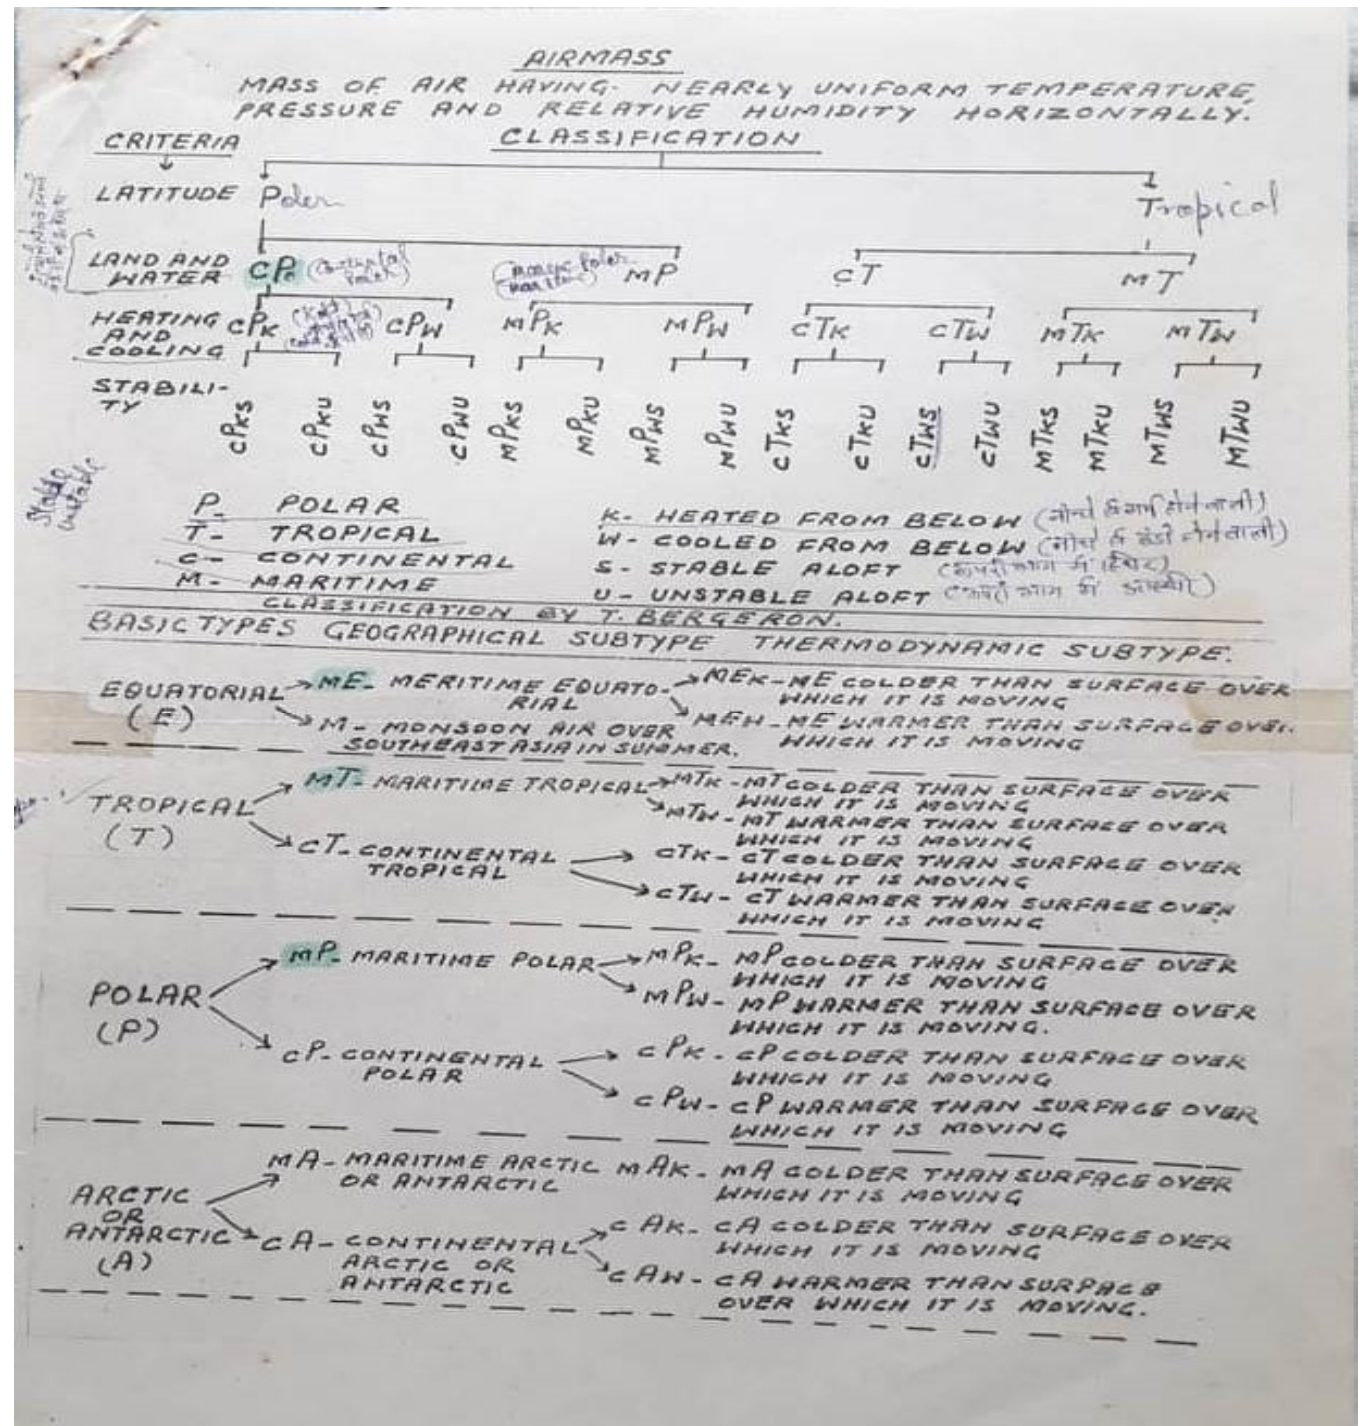 AIRMASS
MASS OF AIR HAVING NEARLY UNIFORM TEMPERATURE,
PRESSURE AND RELATIVE HUMIDITY HORIZONTALLY.
CRITERIA
CLASSIFICATION
LATITUDE Polar Tropical
LAND AND
WATER
CP (Continental
Polar) mP cT MT
HEATING
AND
COOLING
cPK cPW mPK mPW cTK cTW MTK MTW
STABILI-
TY
cPKS cPKU cPWS cPWU MPKS MPKU MPWS MPWU cTKS cTKU cTWS cTWU MTKS MTKU MTWS MTWU
Stable
unstable
P- POLAR
T- TROPICAL
C- CONTINENTAL
M- MARITIME
K- HEATED FROM BELOW
W- COOLED FROM BELOW
S- STABLE ALOFT
U- UNSTABLE ALOFT
CLASSIFICATION BY T. BERGERON.
BASIC TYPES GEOGRAPHICAL SUBTYPE THERMODYNAMIC SUBTYPE.
EQUATORIAL
(E)
ME- MERITIME EQUATO-
RIAL
M- MONSOON AIR OVER
SOUTHEAST ASIA IN SUMMER.
MEK-ME COLDER THAN SURFACE OVER
WHICH IT IS MOVING
MEW-ME WARMER THAN SURFACE OVER
WHICH IT IS MOVING
TROPICAL
(T)
MT- MARITIME TROPICAL
MTK-MT COLDER THAN SURFACE OVER
WHICH IT IS MOVING
MTW-MT WARMER THAN SURFACE OVER
WHICH IT IS MOVING
cT-CONTINENTAL
TROPICAL
cTK-cT COLDER THAN SURFACE OVER
WHICH IT IS MOVING
cTW-cT WARMER THAN SURFACE OVER
WHICH IT IS MOVING
POLAR
(P)
MP- MARITIME POLAR
MPK- MP COLDER THAN SURFACE OVER
WHICH IT IS MOVING
MPW- MP WARMER THAN SURFACE OVER
WHICH IT IS MOVING.
cP-CONTINENTAL
POLAR
cPK-cP COLDER THAN SURFACE OVER
WHICH IT IS MOVING
cPW-cP WARMER THAN SURFACE OVER
WHICH IT IS MOVING
ARCTIC
OR
ANTARCTIC
(A)
MA-MARITIME ARCTIC
OR ANTARCTIC
mAK-MA COLDER THAN SURFACE OVER
WHICH IT IS MOVING
cA-CONTINENTAL
ARCTIC OR
ANTARCTIC
cAK-cA COLDER THAN SURFACE OVER
WHICH IT IS MOVING
cAW-cA WARMER THAN SURFACE
OVER WHICH IT IS MOVING.